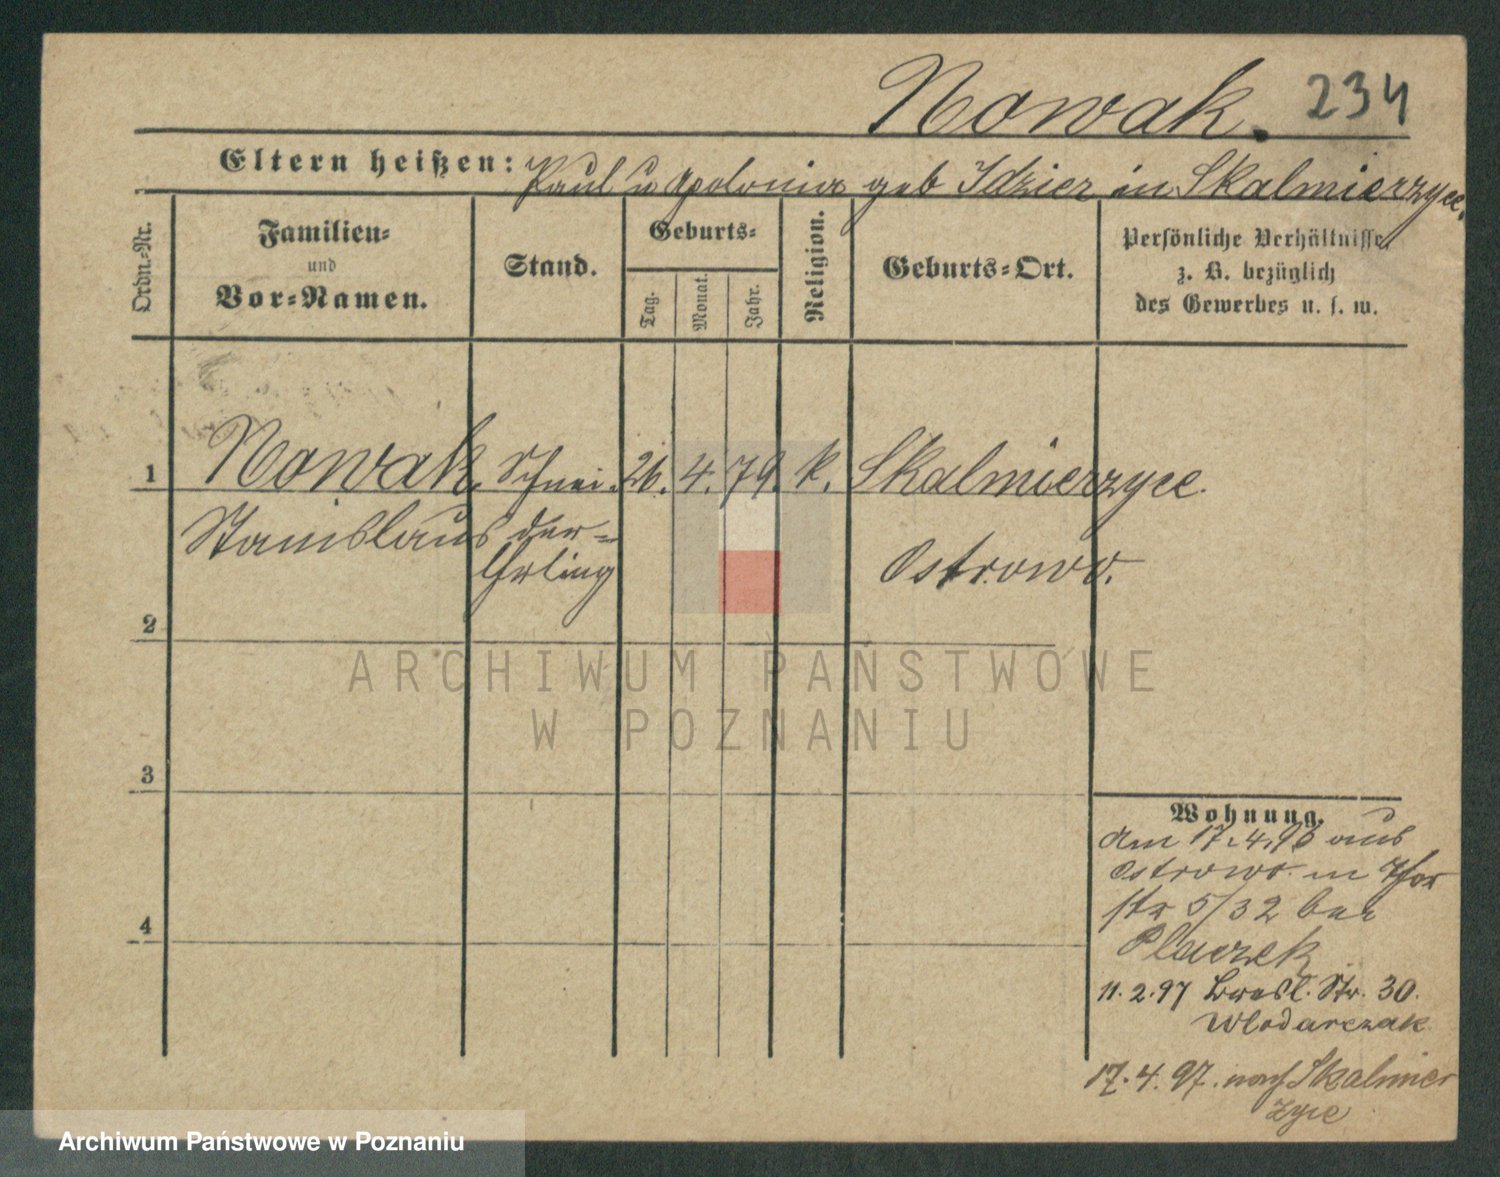 Nowak. 234
Eltern heißen: Paul u Apolonia geb Idzier in Skalmierzyce.
Ordn.-Nr.
Familien-
und
Vor-Namen.
Stand.
Geburts-
Tag.
Monat.
Jahr.
Religion.
Geburts-Ort.
Persönliche Verhältnisse,
z. B. bezüglich
des Gewerbes u. s. w.
1 Nowak, Schnei- 26. 4. 79. k. Skalmierzyce.
Stanislaus der-
Lehrling Ostrowo.
2
3
4
Wohnung.
am 17.4.96 aus
Ostrowo in
str 5/32 bei
Placzek
11.2.97 Bresl. Str. 30.
Wlodarczak
17.4.97. nach Skalmier
zyce
ARCHIWUM PAŃSTWOWE
W POZNANIU
Archiwum Państwowe w Poznaniu